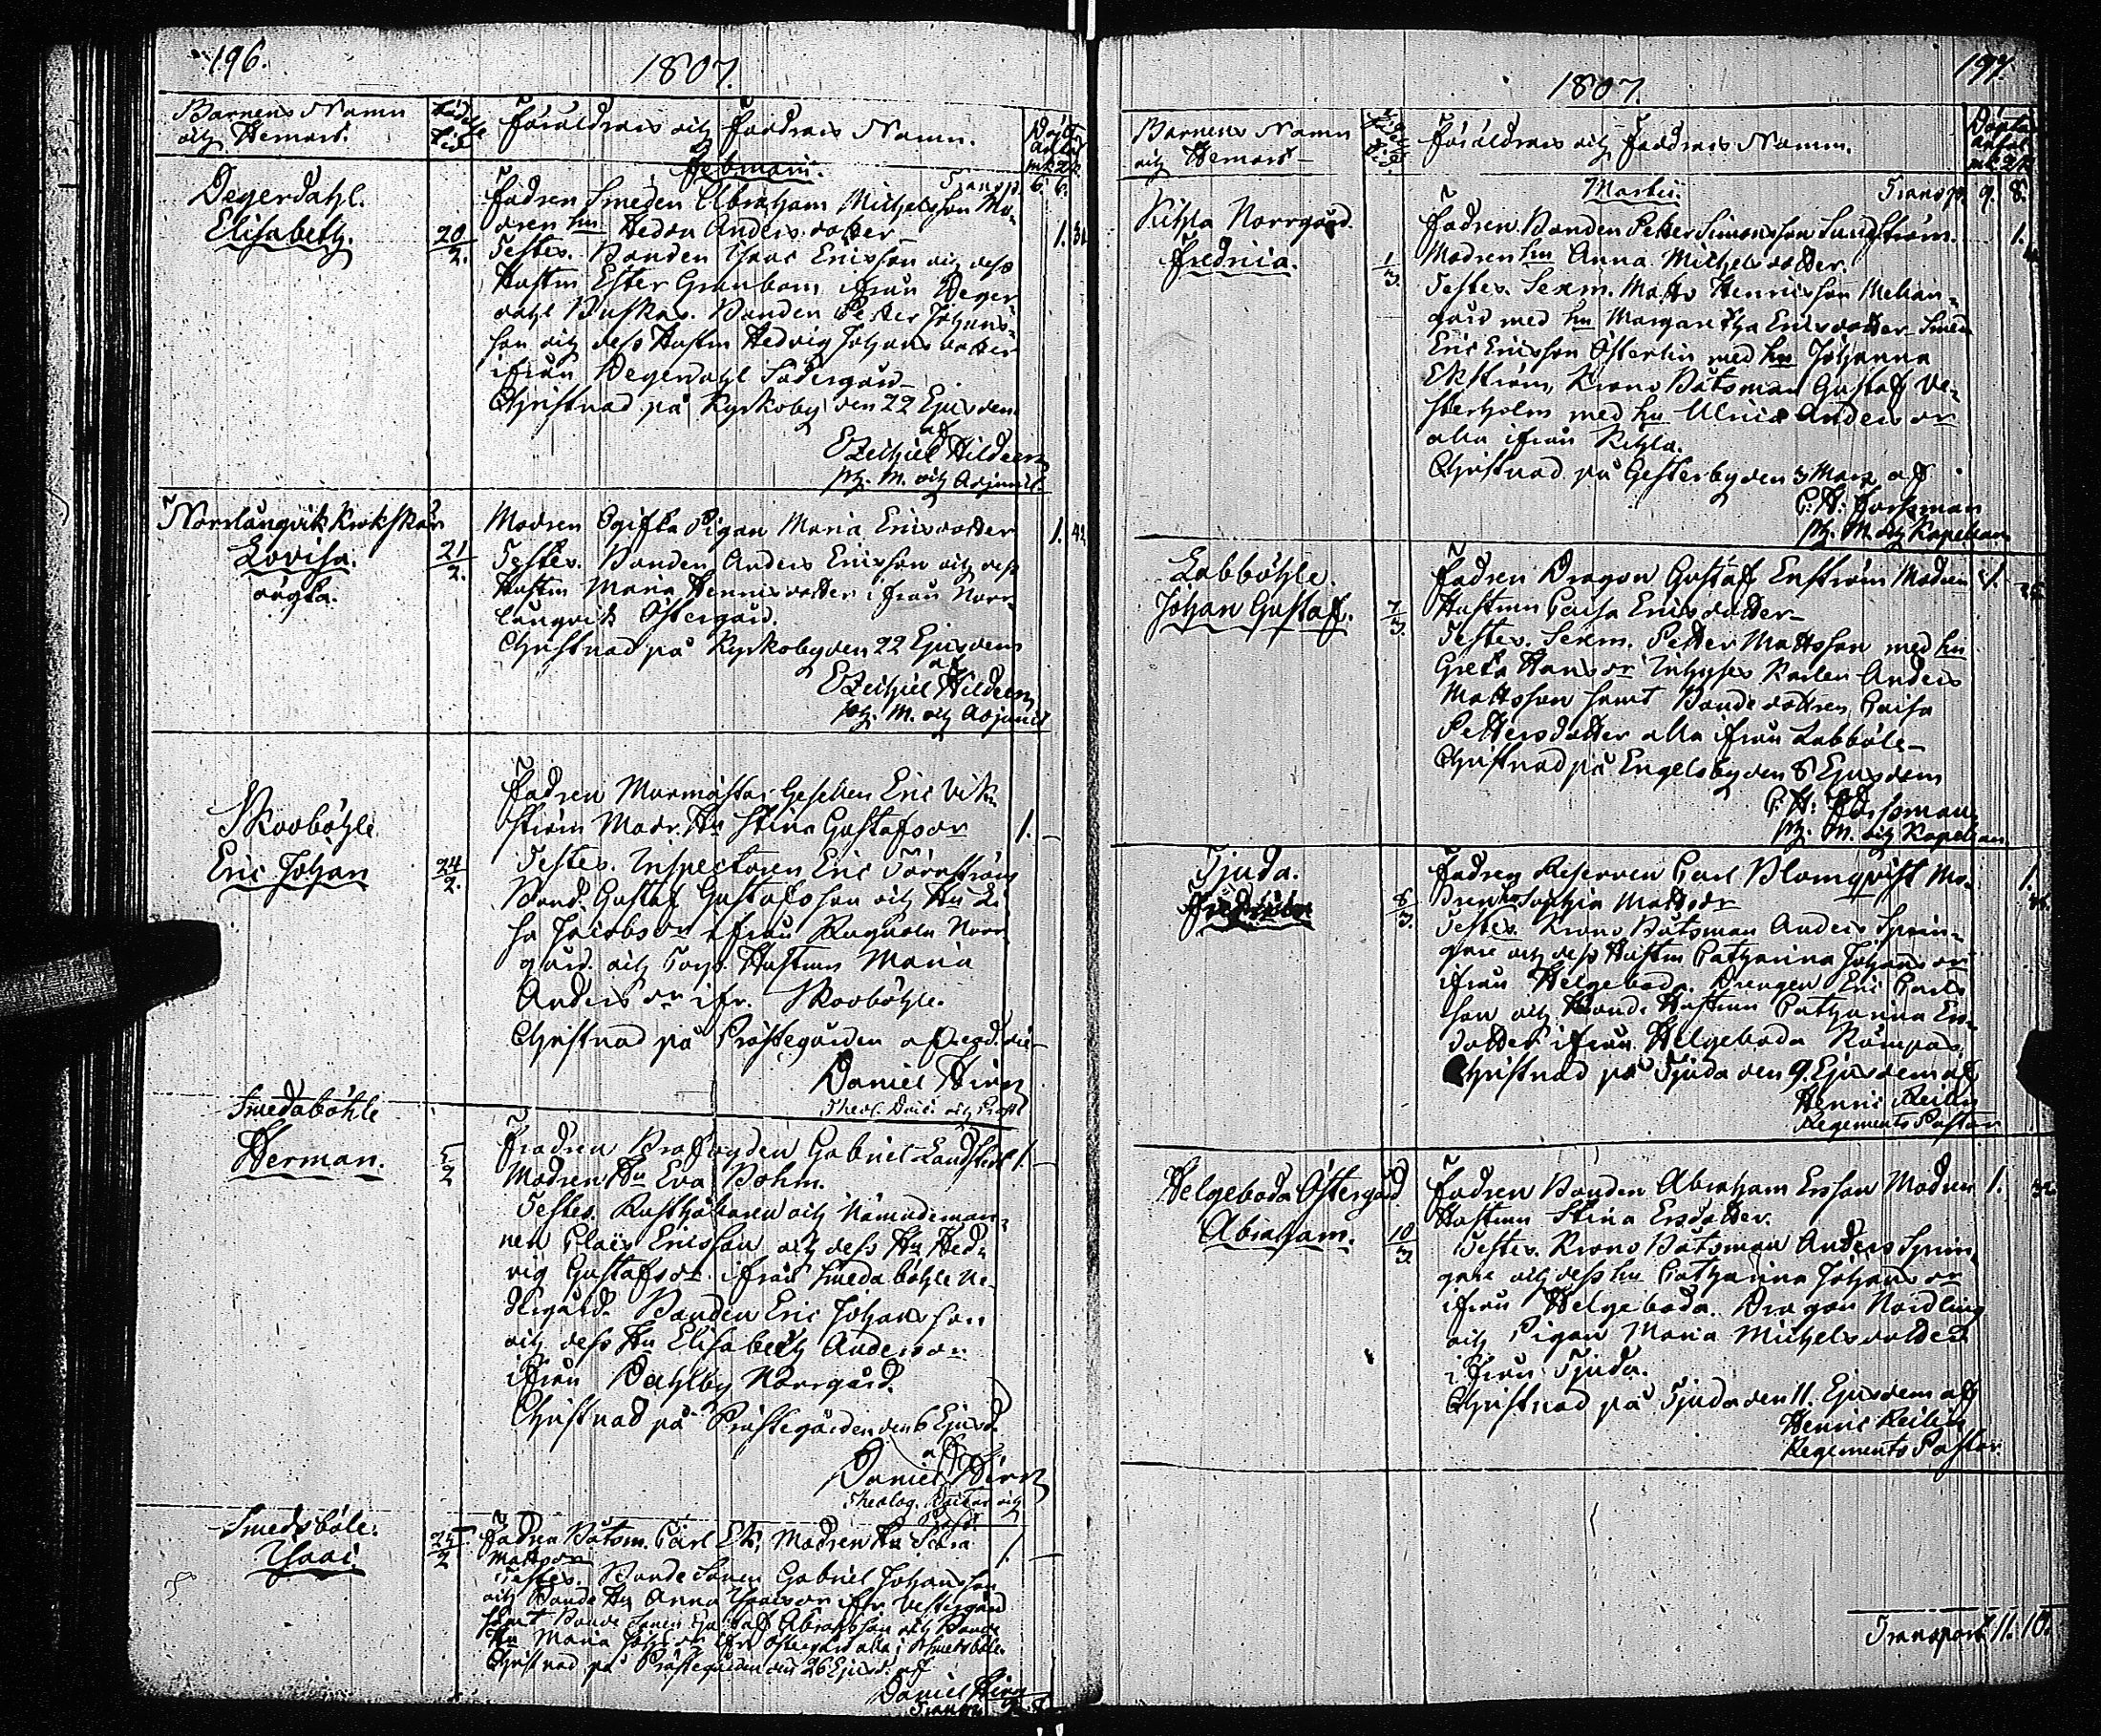 196.
1807.
Barnens Namn
och Hemort.
Födelse
Tid
Föräldrars och Faddrars Namn.
Döpta
antal
mk. qk.
Februarii.
Transp. 6. 6.
Degerdahl.
Elisabeth.
20/2.
Fadren Smeden Abraham Michelsson Mo-
dren hu Hedda Andersdotter
1.
Testes. Bonden Isaac Ericsson och dess
Hustru Ester Granbom ifrån Deger
dahl Buskas. Bonden Petter Johans-
son och dess Hustru Hedvig Johansdotter
ifrån Degerdahl Södergård
Christnad på Kyrkoby den 22 Ejusdem
af
Ezechiel Hildeen
M. och Adjunct.
Norrlångvik Krokskär
Lovisa.
oägta.
21/2.
Modren Ogifta Pigan Maria Ericsdotter
1.
Testes. Bonden Anders Ericsson och dess
Hustru Maria Henricsdotter ifrån Norr-
långvik Östergård.
Christnad på Kyrkoby den 22 Ejusdem
af
Ezechiel Hildeen
M. och Adjunct
Skovböhle
Eric Johan
24/2.
Fadren Murmästar Gesellen Eric Vik-
ström Modr. Hu Stina Gustafsdr
1.
Testes. Inspectoren Eric Törnström
Bond. Gustaf Gustafsson och Hu Li
sa Jacobsdr ifrån Rugnola Norr
gård och Torp. Hustrun Maria
Andersdr ifr. Skovböhle.
Christnad på Prästegården af
Daniel Hirn
Theol. Doct. och Prost
Smedaböhle
Herman.
5/2
Fadren Brofogden Gabriel Landstedt
1.
Modren Hu Eva Bohm.
Testes. Rusthållaren och Nämndeman-
nen Claës Ericsson och dess Hu Hed-
vig Gustafsdr ifrån Smedaböhle Ne-
dergård. Bonden Eric Johansson
och dess Hu Elisabeth Andersdr
ifrån Dahlby Norrgård.
Christnad på Prästegården den 6 Ejusd.
af
Daniel Hirn
Theolog. Doctor och
Prost.
Smedsböle.
Isaac
25/2
Fadren Båtsm. Carl Ek, Modren Hu Sara
1.
Mattsdr
Testes. Bonde Sonen Gabriel Johansson
och Bonde Hu Anna Isacsdr ifr. Vestergård
samt Bonde Sonen Gustaf Abrahsson och Bonde
Hu Maria Johsdr ifr Östergård alla i Smedsböle.
Christnad på Prästegården den 26 Ejusd. af
Daniel Hirn
Transp. 9. 8.
197.
1807.
Barnens Namn
och Hemort
Födelse
Tid.
Föräldrars och Faddrars Namn.
Döpta
antal
mk. qk.
Martii.
Transp. 9. 8.
Kithla Norrgård.
Fredrica.
1/3.
Fadren Bonden Petter Simonsson Sundström.
1.
Modren hu Anna Michelsdotter.
Testes. Sexm. Matts Henricsson Mellan-
gård med hu Margaretha Ericsdotter Smed
Eric Ericsson Österlin med hu Johanna
Ekström, Krono Båtsman Gustaf Ve-
sterholm med hu Ulrica Andersdr
alla ifrån Kithla.
Christnad på Gesterby den 3 Mars af
C. H. Forssman
M. och Kapellan
Labböhle.
Johan Gustaf.
7/3.
Fadren Dragon Gustaf Enström Modren
1.
Hustrun Caisa Ericsdotter
Testes. Sexm. Petter Mattsson med hu
Greta Hansdr Inhyses Karlen Anders
Mattsson samt Bonde dottren Caisa
Pettersdotter alla ifrån Labböle
Christnad på Engelsby den 8 Ejusdem
C. H. Forssman
M. och Kapellan
Tjuda.
8/3.
Fadren Reserven Carl Blomqvist Mo-
1.
dren hu Sophia Mattsdr
Testes. Krono Båtsman Anders Sprin-
gare och dess Hustru Catharina Johansdr
ifrån Helgeboda. Drengen Eric Carls
son och Bonde Hustrun Catharina Eri-
dotter ifrån Helgeboda Rämpas
Christnad på Tjuda den 9. Ejusdem af
Henric Reilin
Regements Pastor
Helgeboda Östergård
Abraham.
10/3.
Fadren Bonden Abraham Ersson Modren
1.
Hustrun Stina Ersdotter.
Testes. Krono Båtsman Anders Sprin-
gare och dess hu Catharina Johansdr
ifrån Helgeboda. Dragon Nordling
och Pigan Maria Michelsdotter
ifrån Tjuda.
Christnad på Tjuda den 11. Ejusdem af
Henric Reilin
Regements Pastor
Transport 11. 10.